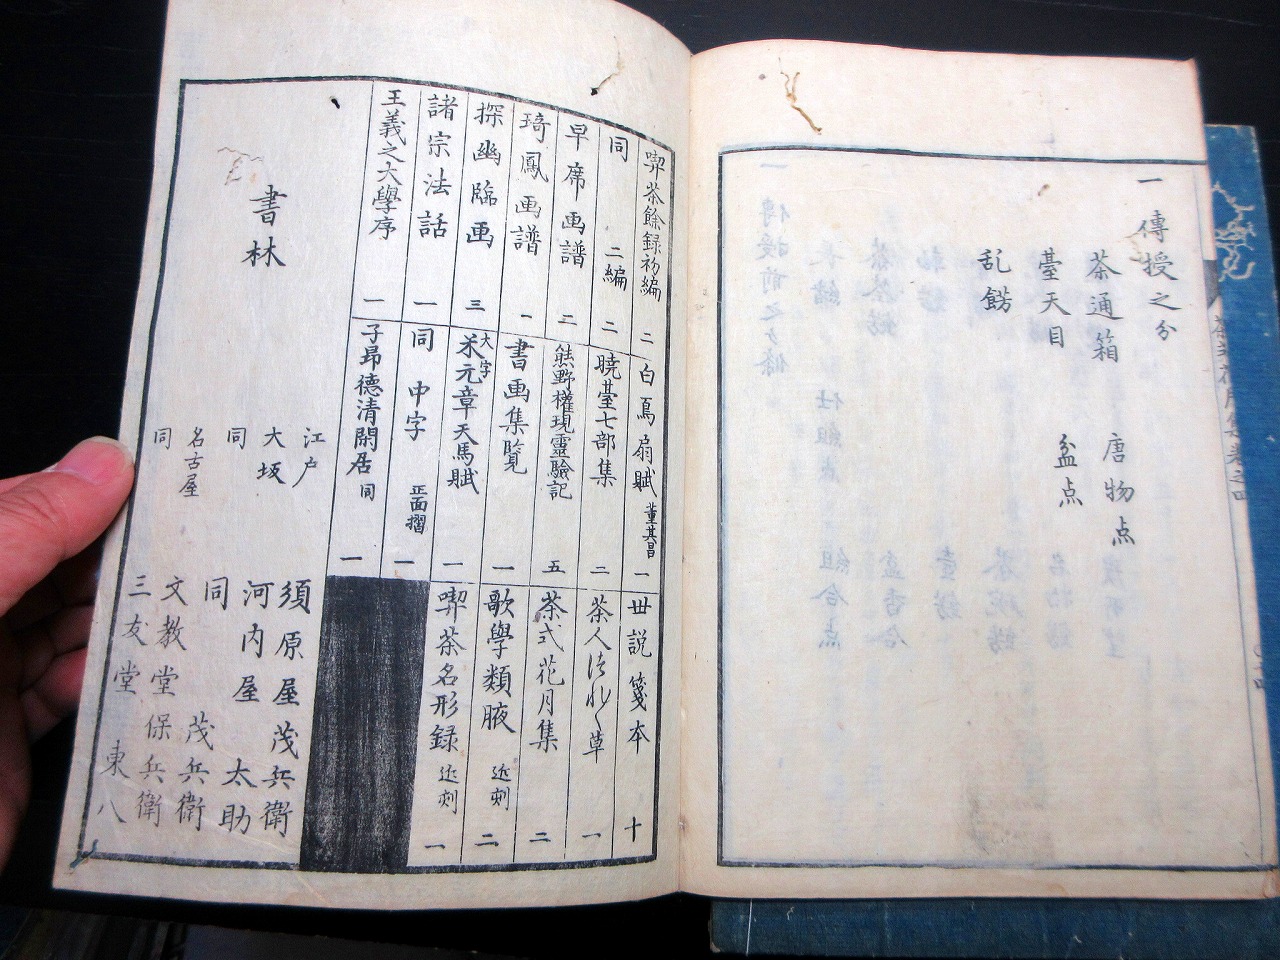 一 傳授之分
茶通箱 唐物点
臺天目 盆点
乱餝
喫茶餘録初編 二
同 二編 二
早席画譜 二
琦鳳画譜 一
探幽臨画 三
諸宗法話 一
王義之大學序 一
白馬扇賦 董其昌 一
暁臺七部集 二
熊野權現靈驗記 五
書画集覧 一
大字 米元章天馬賦 一
同 中字 正面摺 一
子昻德清閑居 同 一
世説箋本 十
茶人つれ〳〵草 一
茶式花月集 二
歌學類腋 近刻 二
喫茶名形録 近刻 一
書林
江戸 須原屋茂兵衛
大坂 河内屋太助
同 同 茂兵衛
名古屋 文教堂保兵衛
同 三友堂東八